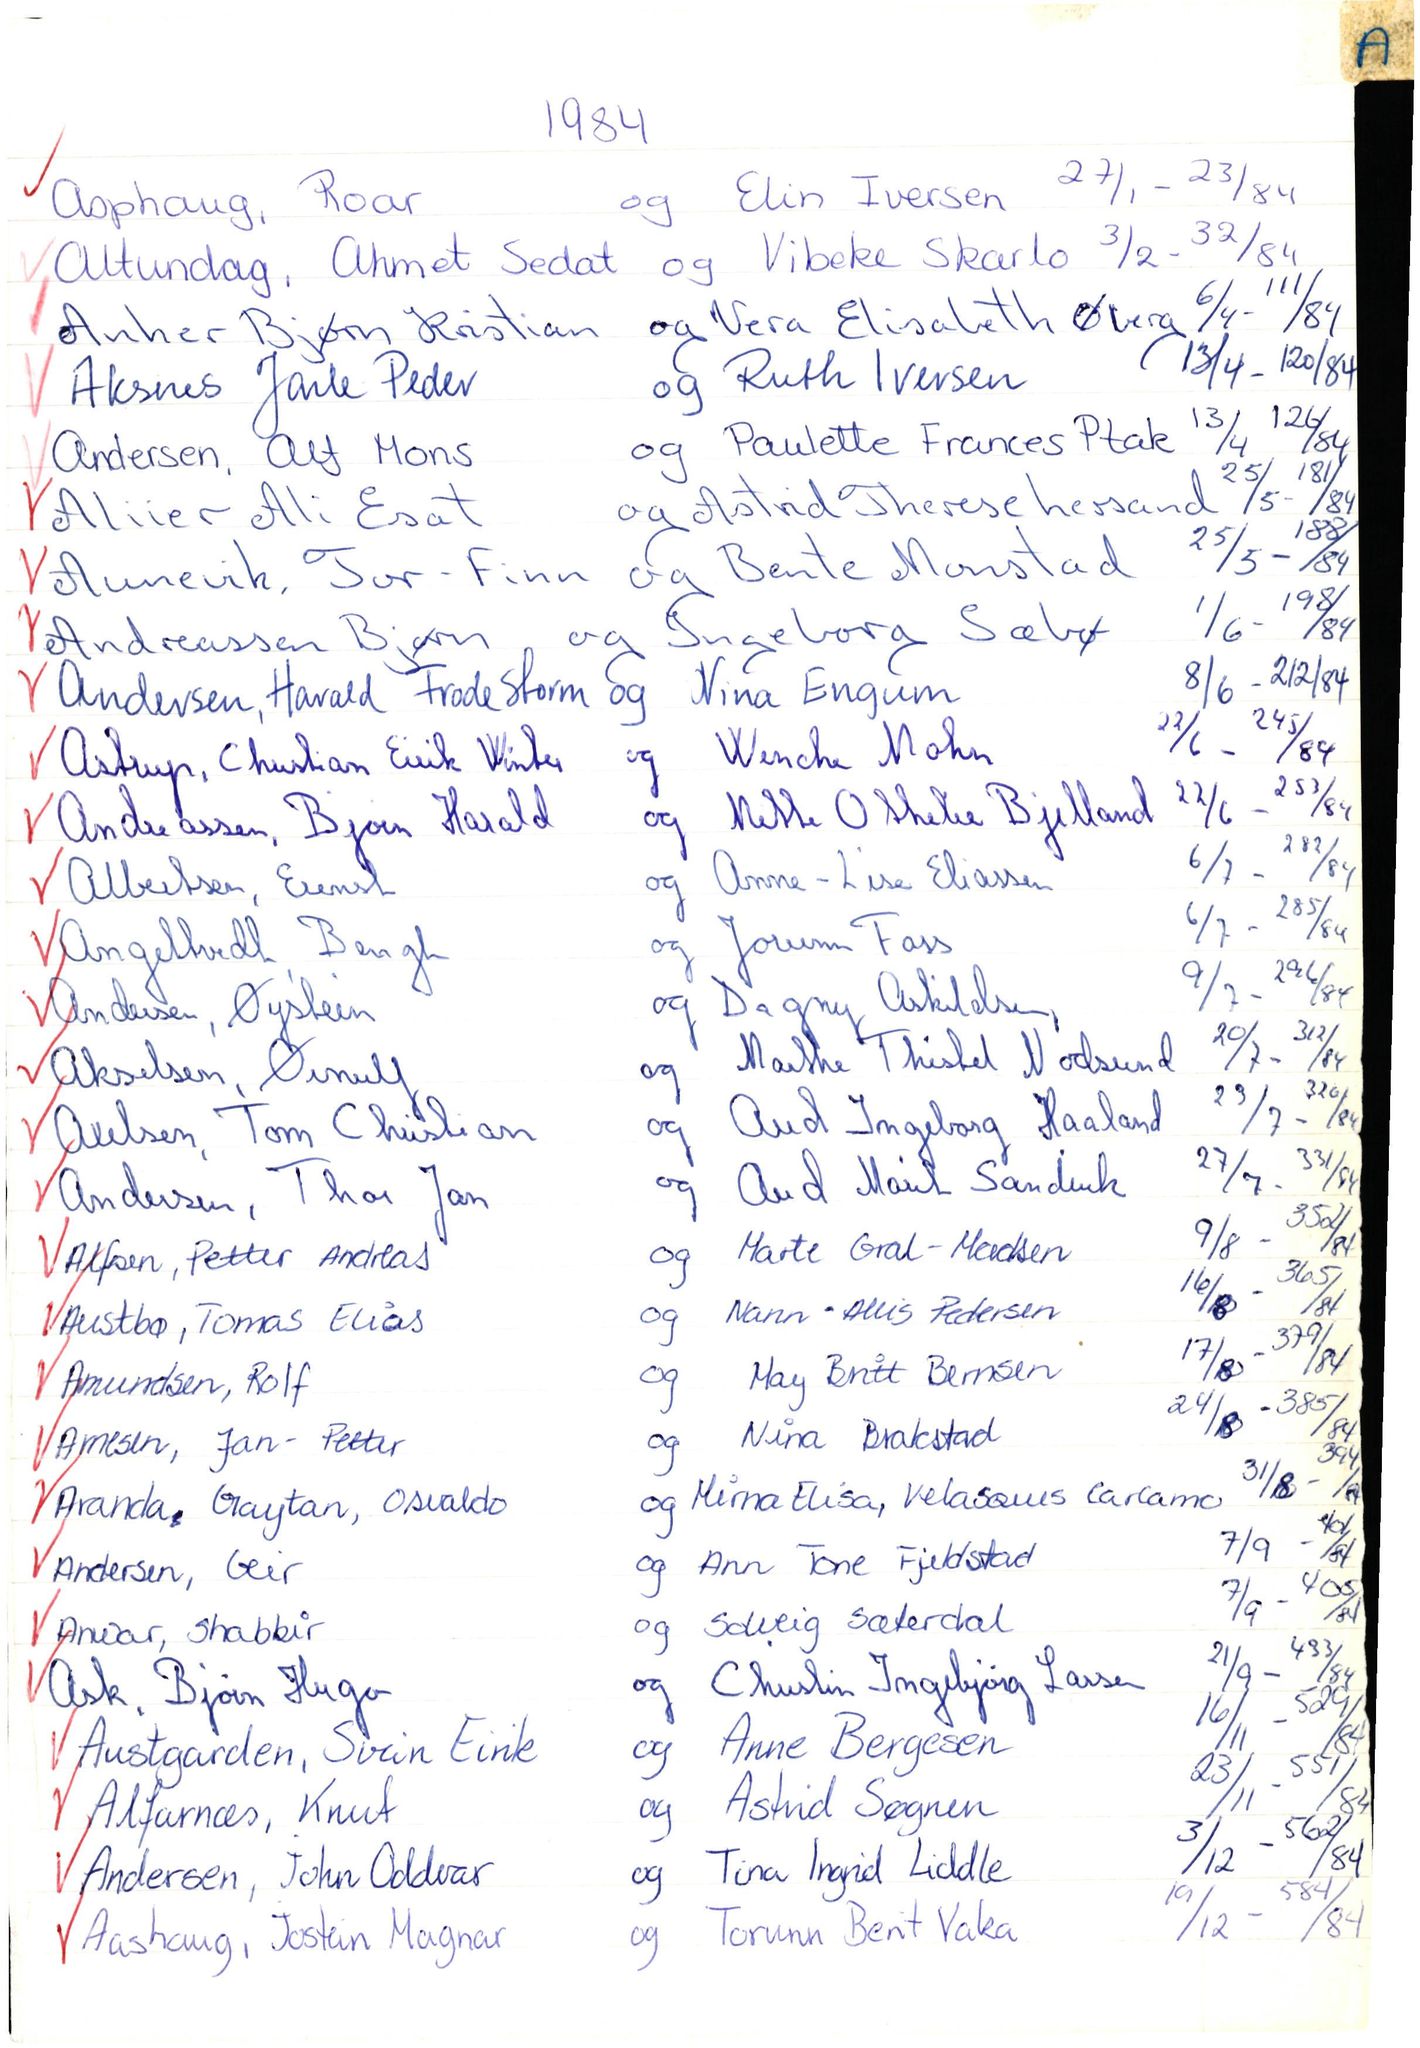 A
1984
Asphaug, Roar og Elin Iversen 27/1 - 23/84
Altundag, Ahmet Sedat og Vibeke Skarlo 3/2 - 32/84
Anker Bjørn Kristian og Vera Elisabeth Øverg 6/4 - 111/84
Aksnes Jarle Peder og Ruth Iversen 13/4 - 120/84
Andersen, Alf Mons og Paulette Frances Ptak 13/4 126/84
Aliier Ali Esat og Astrid Therese 25/5 - 181/84
Aunevik, Tor-Finn og Bente Monstad 25/5 - 188/84
Andreassen Bjørn og Ingeborg Sæbø 1/6 - 198/84
Andersen, Harald Frode Storm og Nina Engum 8/6 - 212/84
Astrup, Christian Eirik Winter og Wenche Mohn 22/6 - 245/84
Andreassen, Bjørn Harald og Mette Othelie Bjelland 22/6 - 253/84
Albertsen, Eirenst og Anne-Lise Eliassen 6/7 - 282/84
Angeltvedt, Bengt og Jorunn Fass 6/7 - 285/84
Andersen, Øystein og Dagny Askildsen, 9/7 - 296/84
Akselsen, Ørnulf og Marthe Thistel Nodsund 20/7 - 312/84
Axelsen, Tom Christian og Aud Ingeborg Haaland 23/7 - 326/84
Andersen, Thor Jan og Aud Marit Sandvik 27/7 - 331/84
Alfsen, Petter Andreas og Marte Gral-Madsen 9/8 - 352/84
Austbø, Tomas Elias og Nann-Allis Pedersen 16/8 - 365/84
Amundsen, Rolf og May Britt Berntsen 17/8 - 379/84
Arnesen, Jan-Petter og Nina Brakstad 24/8 - 385/84
Aranda, Gaytan, Osvaldo og Mirna Elisa, Velasques Carcamo 31/8 - 394/84
Andersen, Geir og Ann Tone Fjeldstad 7/9 - 401/84
Anwar, Shabbir og Solveig Sæterdal 7/9 - 405/84
Ask, Bjørn Hugo og Christin Ingebjørg Larsen 21/9 - 433/84
Austgarden, Svein Eirik og Anne Bergesen 16/11 - 529/84
Alfarnæs, Knut og Astrid Søgnen 23/11 - 551/84
Andersen, John Oddvar og Tina Ingrid Liddle 3/12 - 562/84
Aashaug, Jostein Magnar og Torunn Berit Vaka 19/12 - 584/84